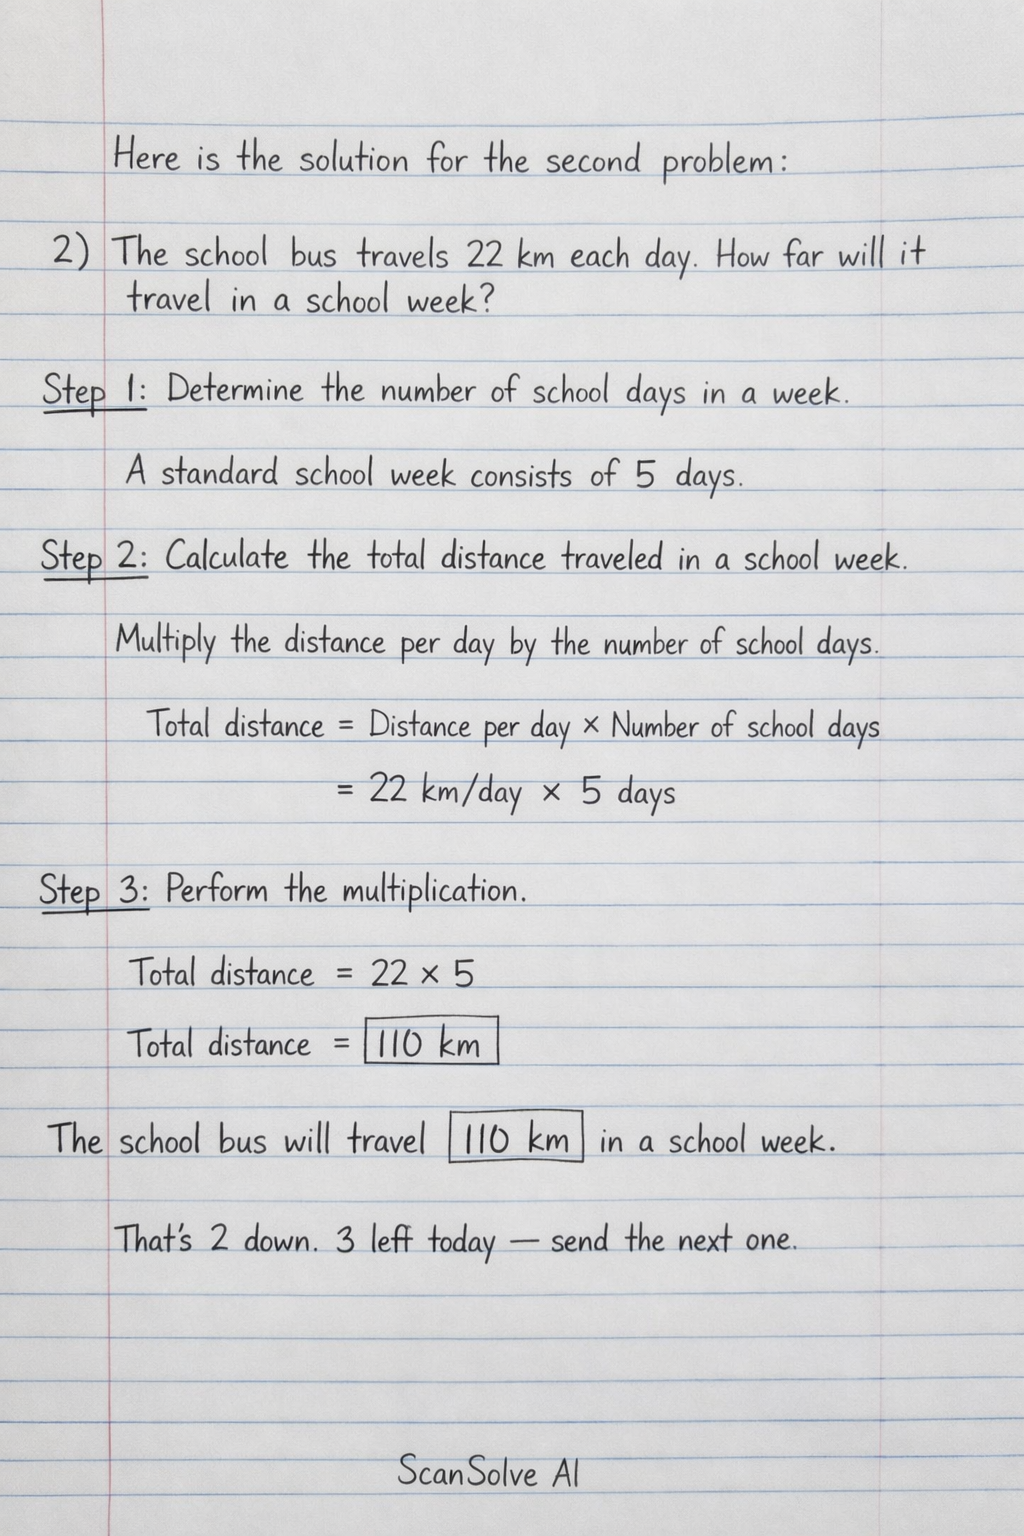 Here is the solution for the second problem:
2) The school bus travels 22 km each day. How far will it
travel in a school week?
Step 1: Determine the number of school days in a week.
A standard school week consists of 5 days.
Step 2: Calculate the total distance traveled in a school week.
Multiply the distance per day by the number of school days.
Total distance = Distance per day × Number of school days
= 22 km/day × 5 days
Step 3: Perform the multiplication.
Total distance = 22 × 5
Total distance = 110 km
The school bus will travel 110 km in a school week.
That's 2 down. 3 left today — send the next one.
ScanSolve AI